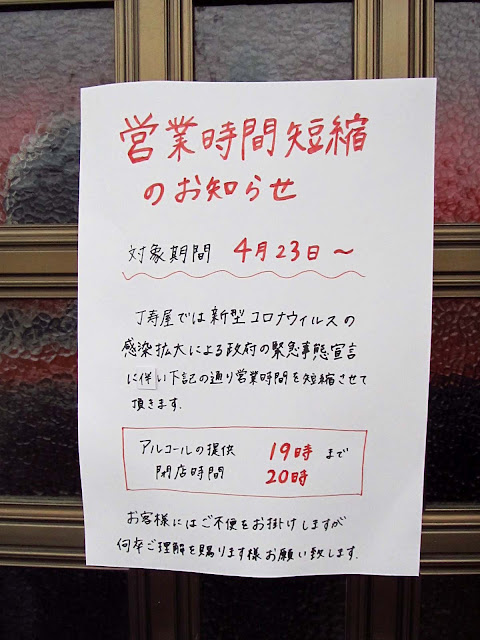 営業時間短縮
のお知らせ
対象期間 4月23日～
丁寿屋では新型コロナウィルスの
感染拡大による政府の緊急事態宣言
に伴い下記の通り営業時間を短縮させて
頂きます.
アルコールの提供 19時まで
閉店時間 20時
お客様にはご不便をお掛けしますが
何卒ご理解を賜ります様お願い致します.